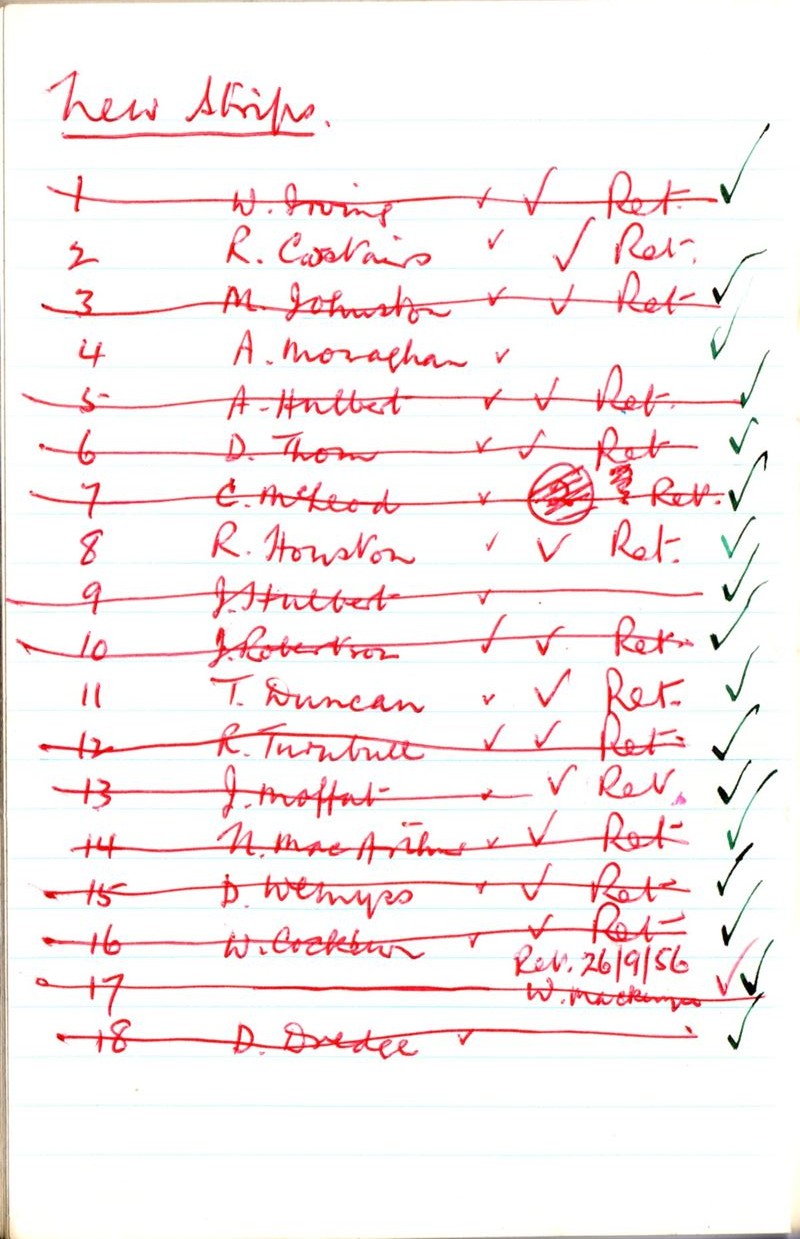 New Strips.
1 W. Irving ✓ ✓ Ret. ✓
2 R. Costairs ✓ ✓ Ret.
3 M. Johnston ✓ ✓ Ret ✓
4 A. Monaghan ✓ ✓
5 A. Hulbert ✓ ✓ Ret. ✓
6 D. Thom ✓ ✓ Ret ✓
7 C. McLeod ✓ Ret. ✓
8 R. Houston ✓ ✓ Ret. ✓
9 J. Hulbert ✓ ✓
10 J. Robertson ✓ ✓ Ret. ✓
11 T. Duncan ✓ ✓ Ret. ✓
12 R. Turnbull ✓ ✓ Ret. ✓
13 J. Moffat ✓ ✓ Ret. ✓
14 N. MacArthur ✓ ✓ Ret ✓
15 D. Wemyss ✓ ✓ Ret ✓
16 W. Cockburn ✓ ✓ Ret ✓
Ret. 26/9/56
17 W. ✓ ✓
18 D. Dredge ✓ ✓